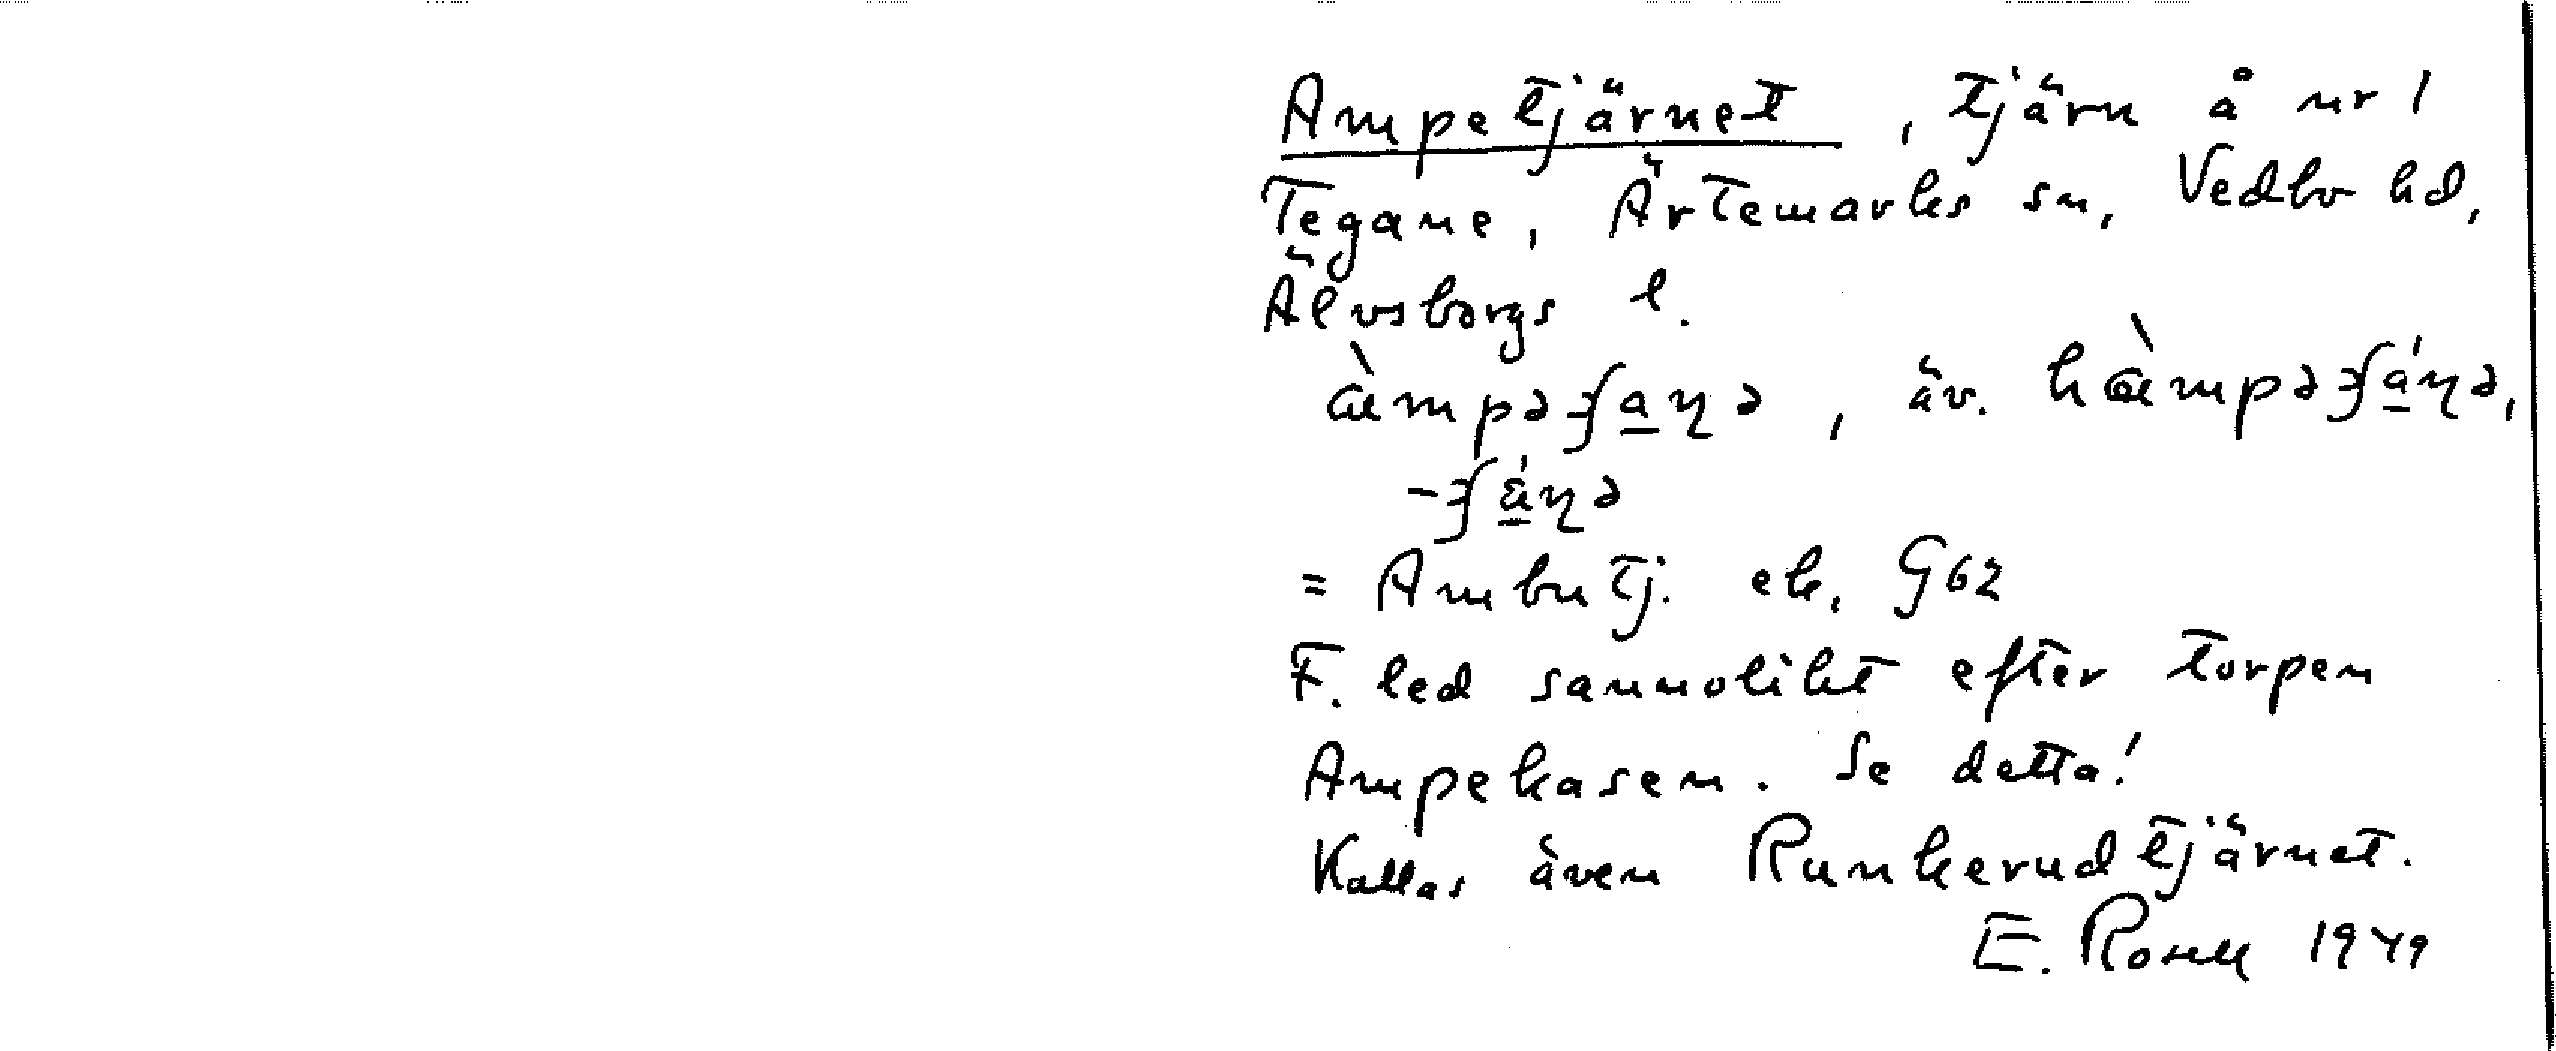 Ampetjärnet, tjärn å nr 1
Tegane, Ärtemarks sn, Vedbo hd,
Älvsborgs l.
äv.
= Ambutj. ek. G62
F. led sannolikt efter torpen
Ampekasen. Se detta!
Kallas även Runkerudtjärnet.
E. 1949